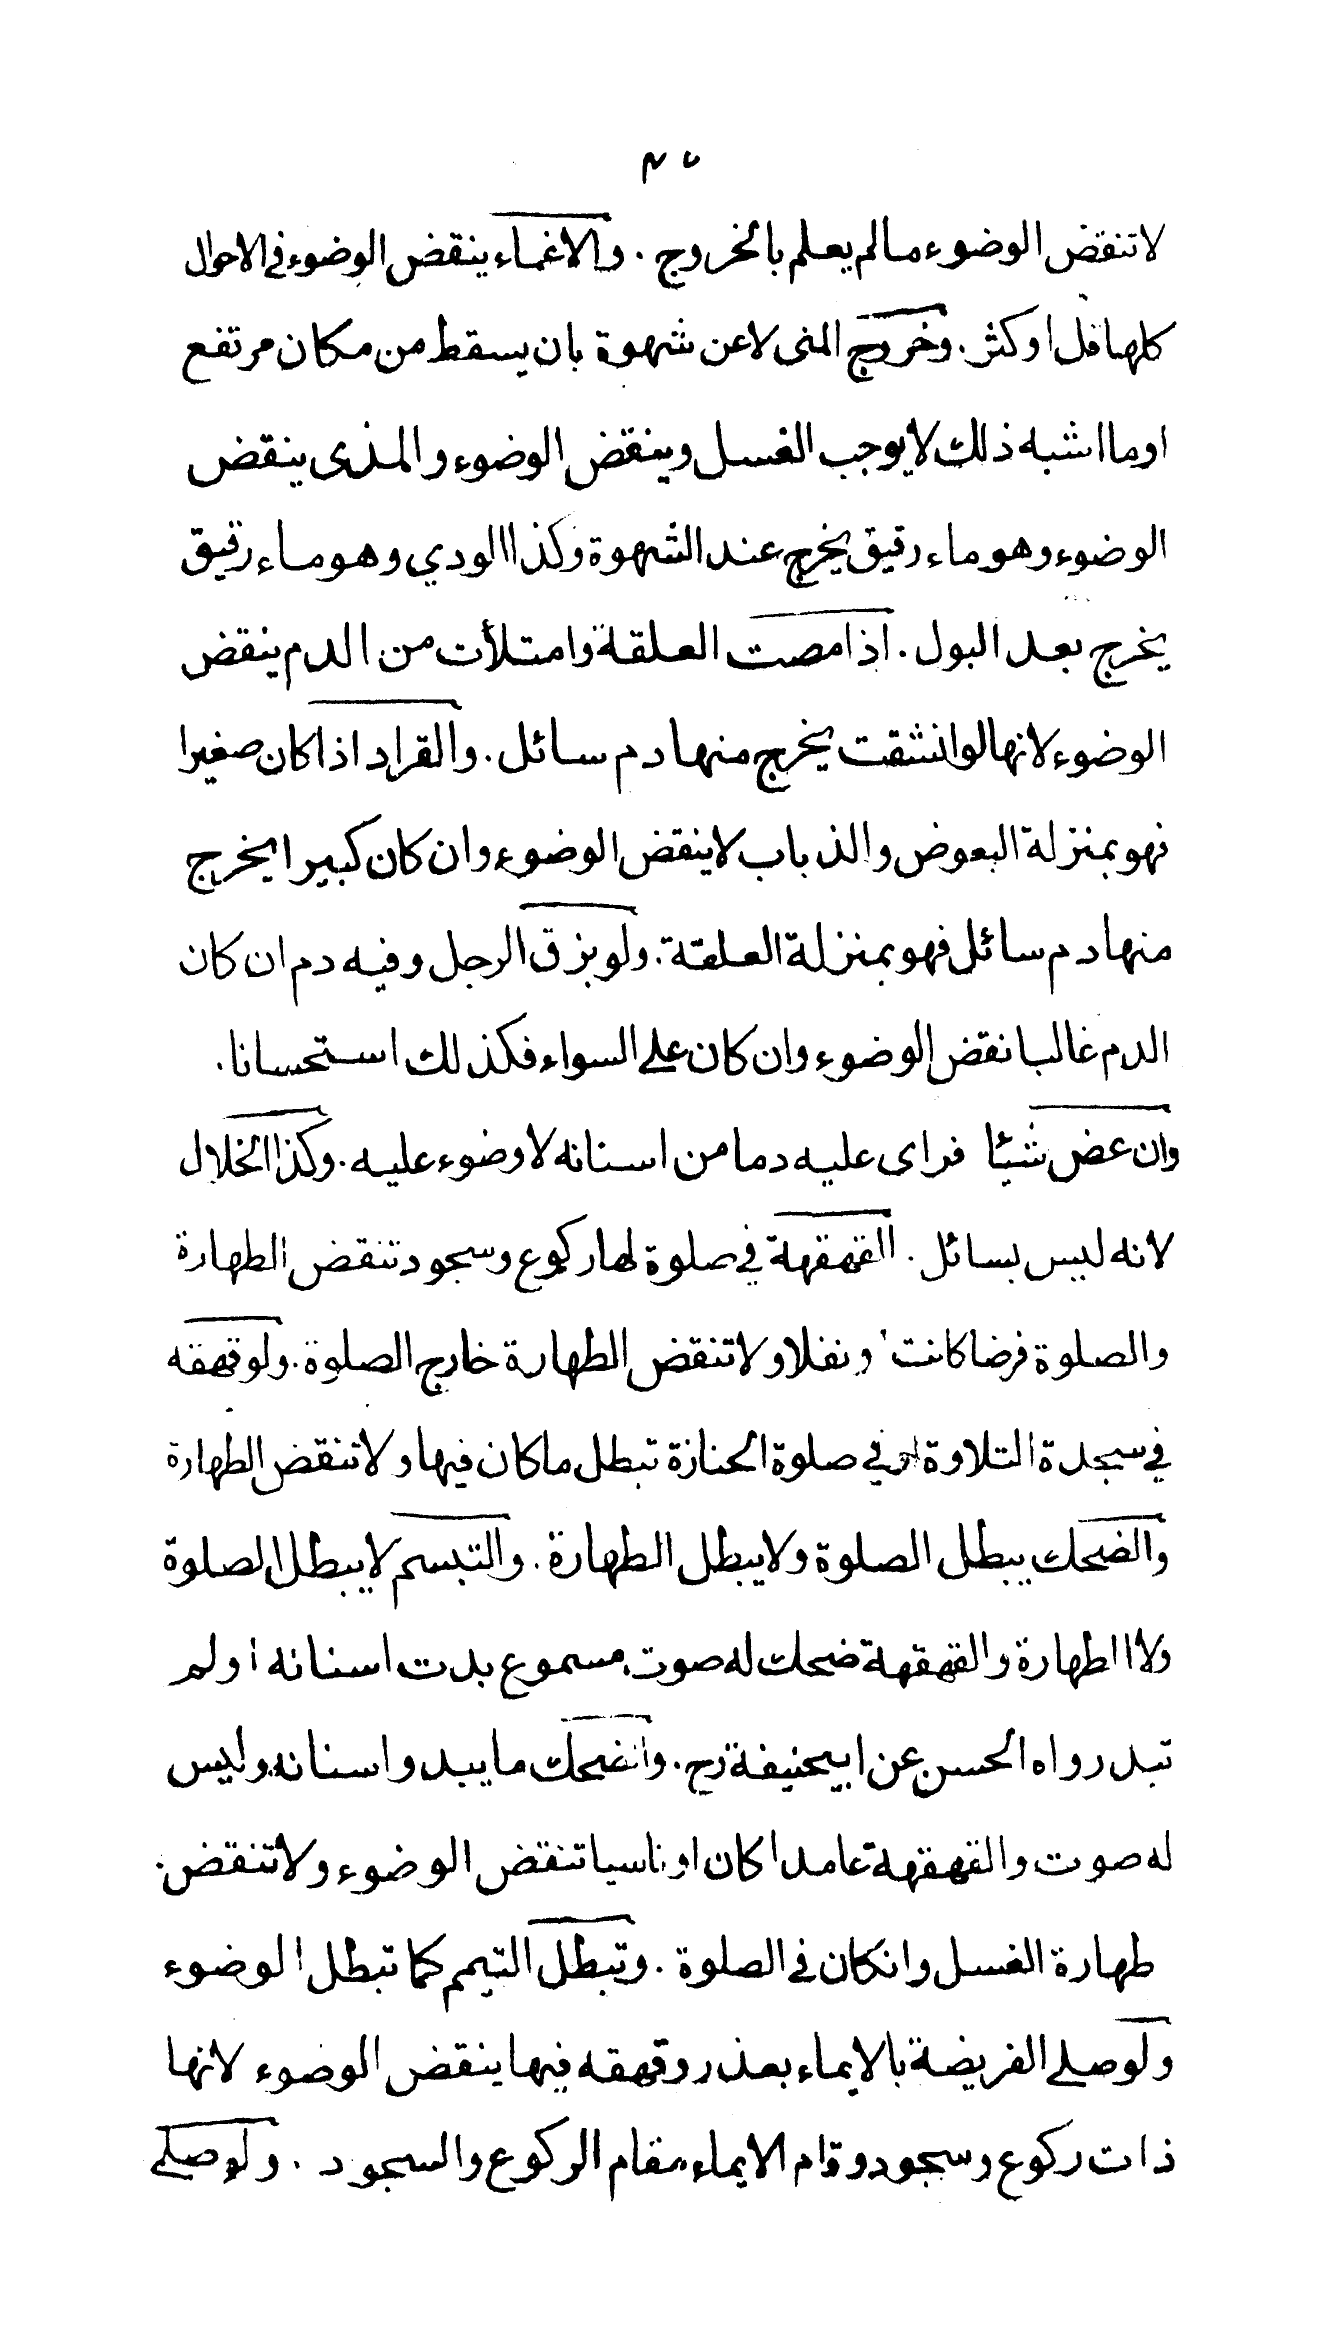 لا تنقض الوضوء مالم يعلم بالخروج . والاغماء ينقض الوضوء فى الاحوال
كلها قل او كثر . وخروج المنى لاعن شهوة بان يسقط من مكان مرتفع
اوما اشبه ذلك لا يوجب الغسل وينقض الوضوء والمذى ينقض
الوضوء وهو ماء رقيق يخرج عند الشهوة وكذا الودي وهو ماء رقيق
يخرج بعد البول . اذا مصت العلقة وامتلأت من الدم ينقض
الوضوء لانها لو انشقت يخرج منها دم سائل . والقراد اذا كان صغيرا
فهو بمنزلة البعوض والذباب لا ينقض الوضوء وان كان كبيرا يخرج
منها دم سائل فهو بمنزلة العلقة . ولو بزق الرجل وفيه دم ان كان
الدم غالبا نقض الوضوء وان كان على السواء فكذلك استحسانا .
وان عض شيئا فراى عليه دما من اسنانه لا وضوء عليه . وكذا الخلال
لانه ليس بسائل . القهقهة في صلوة لها ركوع وسجود تنقض الطهارة
والصلوة فرضا كانت او نفلا ولا تنقض الطهارة خارج الصلوة . ولو قهقه
في سجدة التلاوة او في صلوة الجنازة تبطل ما كان فيها ولا تنقض الطهارة
والضحك يبطل الصلوة ولا يبطل الطهارة . والتبسم لا يبطل الصلوة
ولا الطهارة والقهقهة ضحك له صوت مسموع بدت اسنانه او لم
تبد رواه الحسن عن ابيحنيفة رح . والضحك ما يبدو اسنانه وليس
له صوت والقهقهة عامدا كان او ناسيا تنقض الوضوء ولا تنقض .
طهارة الغسل وانكان فى الصلوة . وتبطل التيمم كما تبطل الوضوء
ولو صلى الفريضة بالايماء بعذر وقهقه فيها ينقض الوضوء لانها
ذات ركوع وسجود وقام الايماء مقام الركوع والسجود . ولو صلى